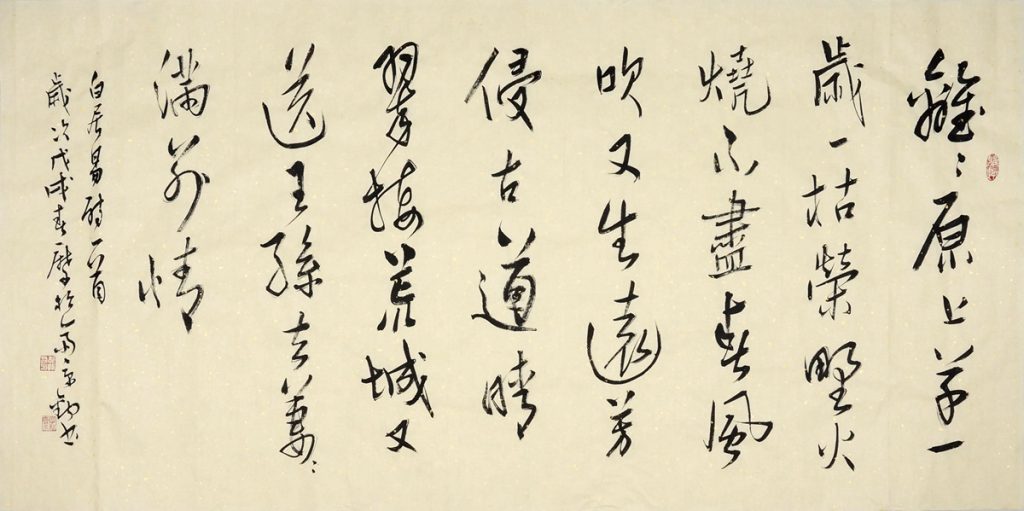 離〻原上草一
歲一枯榮野火
燒不盡春風
吹又生遠芳
侵古道晴
翠接荒城又
送王孫去萋〻
滿別情
白居易詩一首
歲次戊戌春於南京書